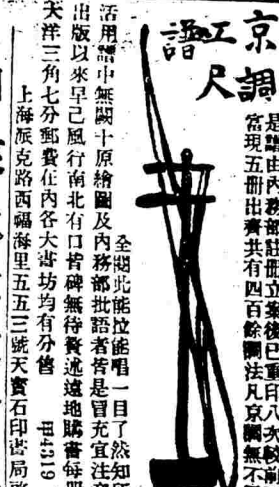 京調
工尺
譜
是譜由內務部註冊立案後已重印八次較
富現五冊出齊共有四百餘闋法凡京調無不
全閱此能拉能唱一目了然知
活用譜中無闕十原繪圖及內務部批語者皆是冒充宜注
出版以來早已風行南北有口皆碑無待贅述遠地購書每
大洋三角七分郵費在內各大書坊均有分售 甲4319
上海派克路西福海里五五三號天寶石印書局